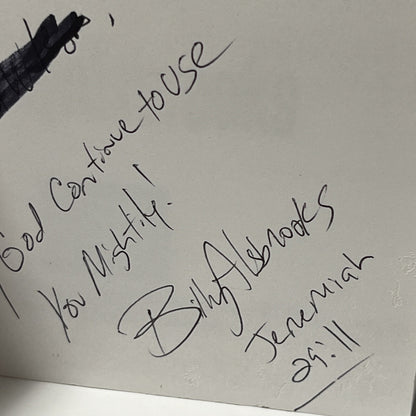 God Continue to use
You Mightily!
Billy Alsbrooks
Jeremiah
29:11